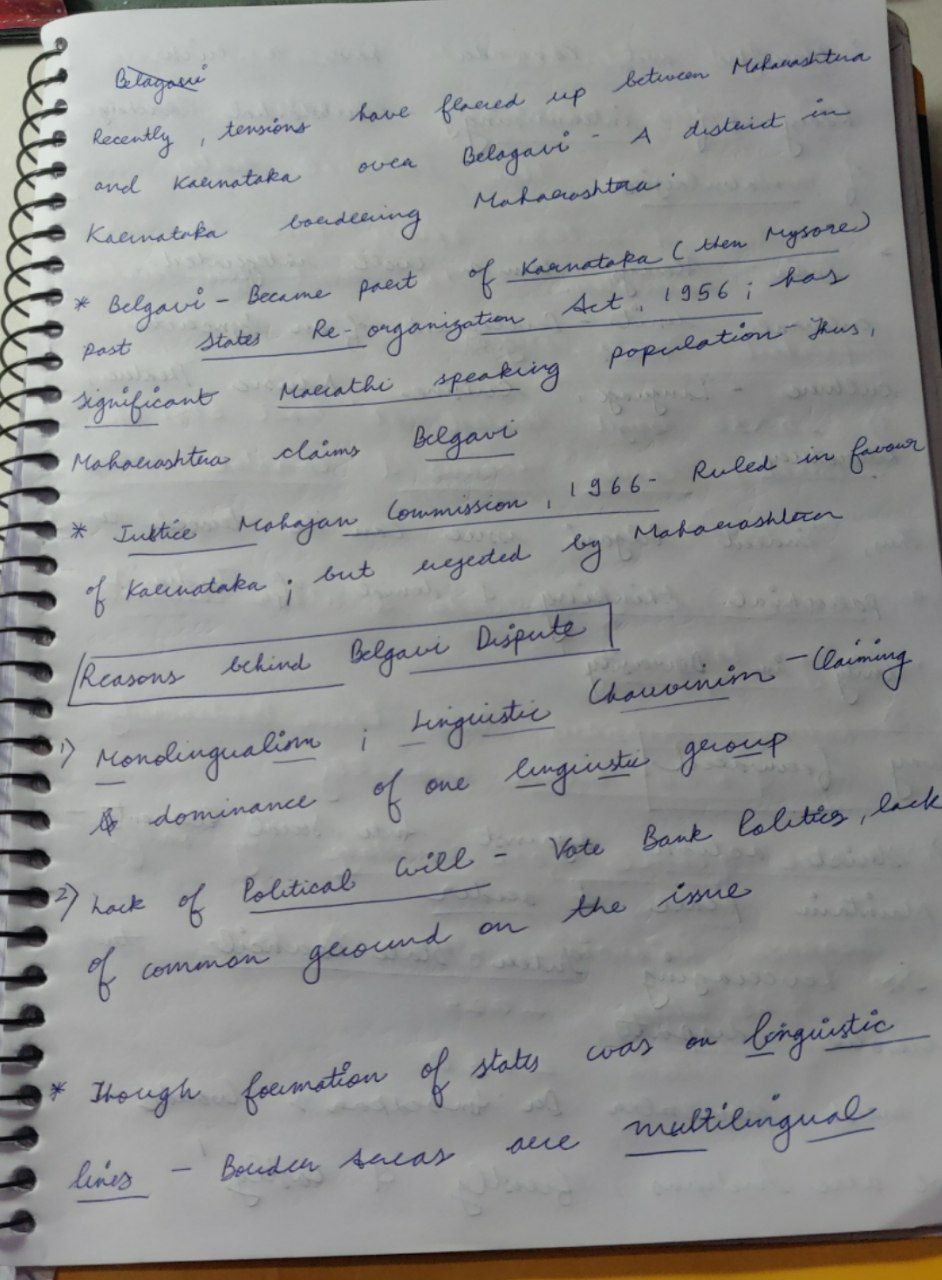 Belagavi
Recently, tensions have flared up between Maharashtra
and Karnataka over Belagavi - A district in
Karnataka bordering Maharashtra.
* Belgavi - Became part of Karnataka (then Mysore)
past States Re-organization Act, 1956; has
significant Marathi speaking population - Thus,
Maharashtra claims Belgavi
* Justice Mahajan Commission, 1966 - Ruled in favour
of Karnataka; but rejected by Maharashtra
Reasons behind Belgavi Dispute
1) Monolingualism; Linguistic Chauvinism - Claiming
dominance of one linguistic group
2) Lack of Political Will - Vote Bank Politics, lack
of common ground on the issue
* Though formation of states was on linguistic
lines - Border areas are multilingual